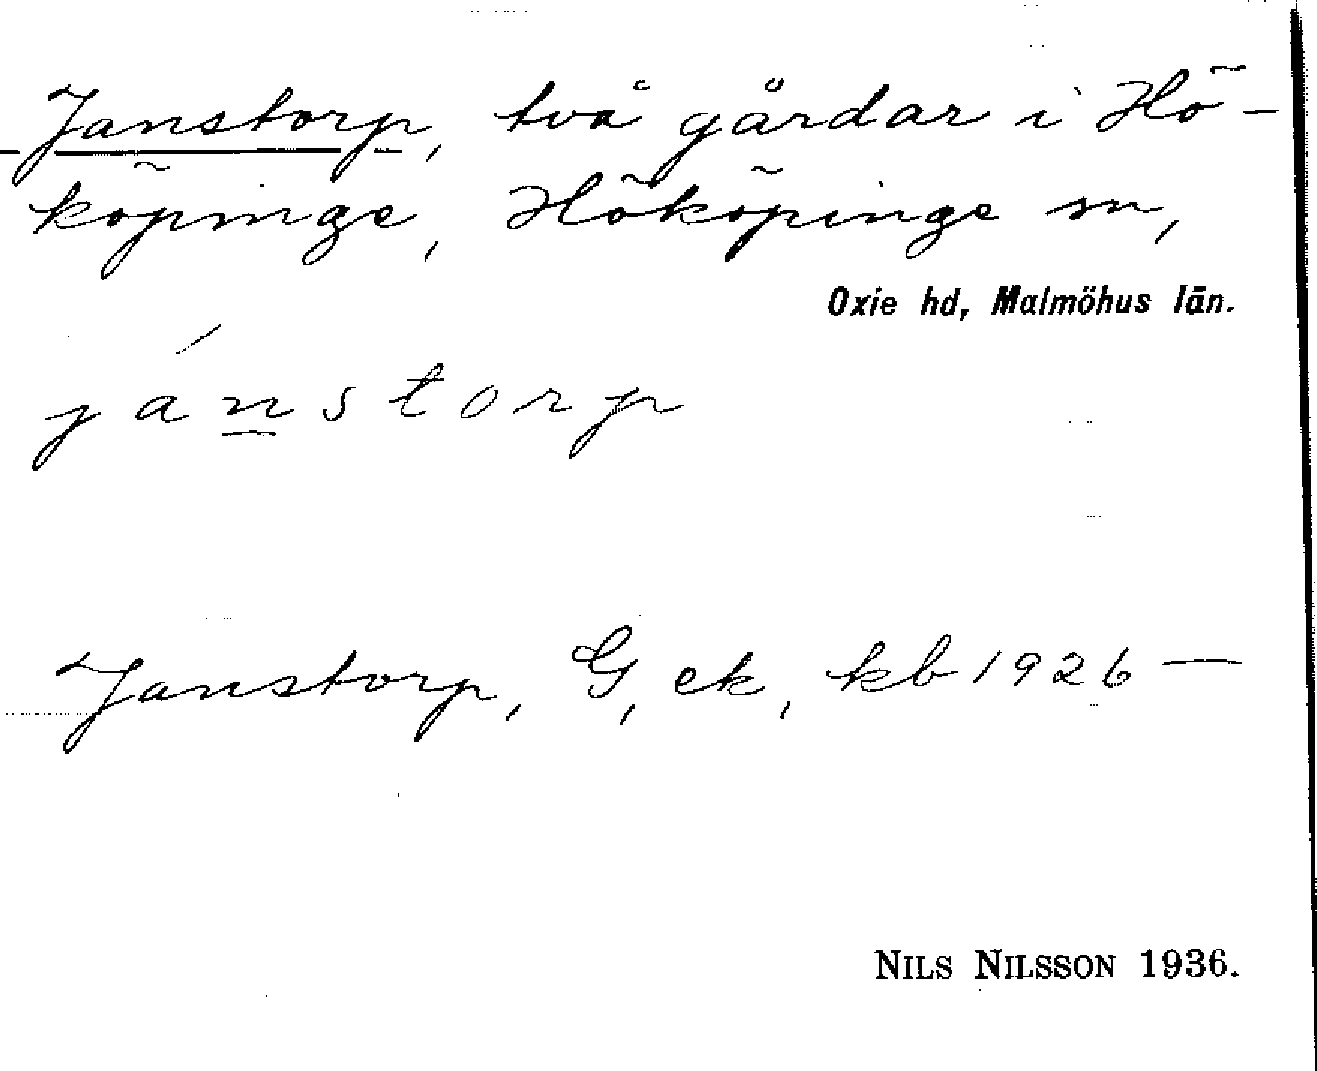 Janstorp, två gårdar i Hö-
köpinge, Hököpinge sn,
Oxie hd, Malmöhus län.
jánstorp
Janstorp, G, ek, kb 1926 —
NILS NILSSON 1936.